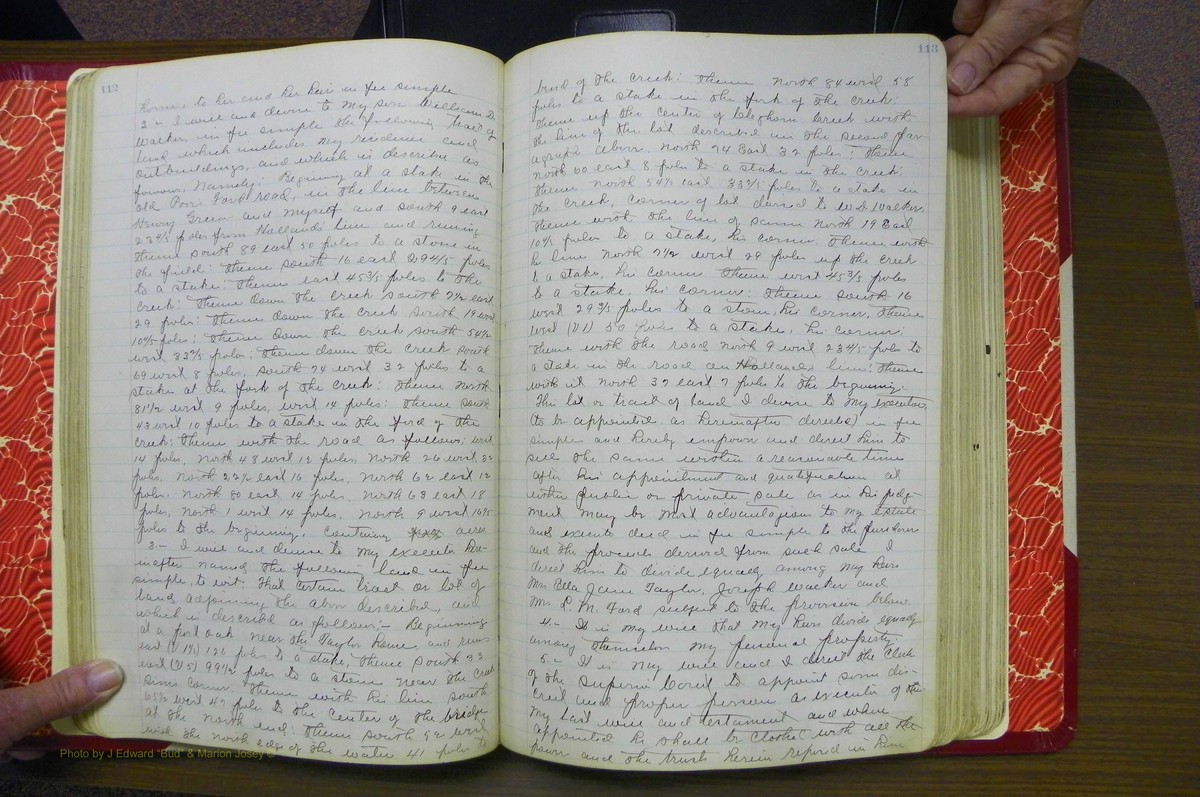 112
home, to her and her heirs in fee simple
2 - I will and devise to my son William D.
Walker in fee simple the following tract of
land which includes my residence and
outbuildings, and which is described as
follows: Namely: Beginning at a stake in the
old Ford road, in the line between
Henry Green and myself and South 9 east
23 4/5 poles from Hollands line and running
thence South 89 east 50 poles to a stone in
the field: thence South 16 east 29 4/5 poles
to a stake: thence east 45 3/5 poles to the
creek: thence down the creek South 7 1/2 east
29 poles: thence down the creek South 19 west
10 4/5 poles: thence down the creek South 54 1/2
west 33 2/5 poles; thence down the creek South
69 west 8 poles, South 74 west 32 poles to a
stake at the fork of the creek: thence North
81 1/2 west 9 poles, west 14 poles: thence South
43 west 10 poles to a stake in the ford of the
creek: thence with the road as follows; west
14 poles, North 48 west 12 poles, North 26 west 32
poles. North 22 1/2 east 16 poles. North 62 east 12
poles. North 80 east 14 poles. North 63 east 18
poles, North 1 west 14 poles. North 9 west
poles to the beginning. Containing acres
3. - I will and devise to my executor here-
inafter named the following land in fee
simple, to wit: That certain tract or lot of
land adjoining the above described, and
which is described as follows; - Beginning
at a post oak near the Taylor house, and runs
east 120 poles to a stake, thence South 33
east 99 1/2 poles to a stone near the creek
Sims corner. Thence with his line South
65 1/2 west 47 poles to the center of the bridge
at the north end: Thence South 52 west
with the north edge of the water 41 poles to
113
bend of the creek: Thence North 84 west 58
poles to a stake in the fork of the creek:
thence up the center of Creek with
the line of the lot described in the second par-
agraph above. North 74 East 32 poles; thence
North 60 east 8 poles to a stake in the creek:
thence North 54 1/2 east 33 2/5 poles to a stake in
the creek, corner of lot devised to W D Walker.
thence with the line of same North 19 East
10 4/5 poles to a stake, his corner. Thence with
his line North 7 1/2 west 29 poles up the creek
to a stake, his corner Thence west 45 3/5 poles
to a stake, his corner: Thence South 16
west 29 3/5 poles to a stone, his corner, thence
west 50 poles to a stake, his corner:
thence with the road North 9 west 23 4/5 poles to
a stake in the road on Hollands line; thence
with it North 32 east 7 poles to the beginning.
This lot or tract of land I devise to my executor
(to be appointed as hereinafter directed) in fee
simple and hereby empower and direct him to
sell the same within a reasonable time
after his appointment and qualification at
either public or private sale as in his judg-
ment may be most advantageous to my estate
and execute deed in fee simple to the purchaser
and the proceeds derived from such sale I
direct him to divide equally among my heirs
Mrs. Ella Jane Taylor, Joseph Walker and
Mrs L. M. Ford subject to the provision below.
4. - It is my will that my heirs divide equally
among themselves my personal property.
5. - It is my will and I direct the Clerk
of the Superior Court to appoint some dis-
creet and proper person as executor of this
my last will and testament and when
appointed he shall be clothed with all the
power and the trusts herein reposed in him
Photo by J Edward "Bud" & Marion Josey ©